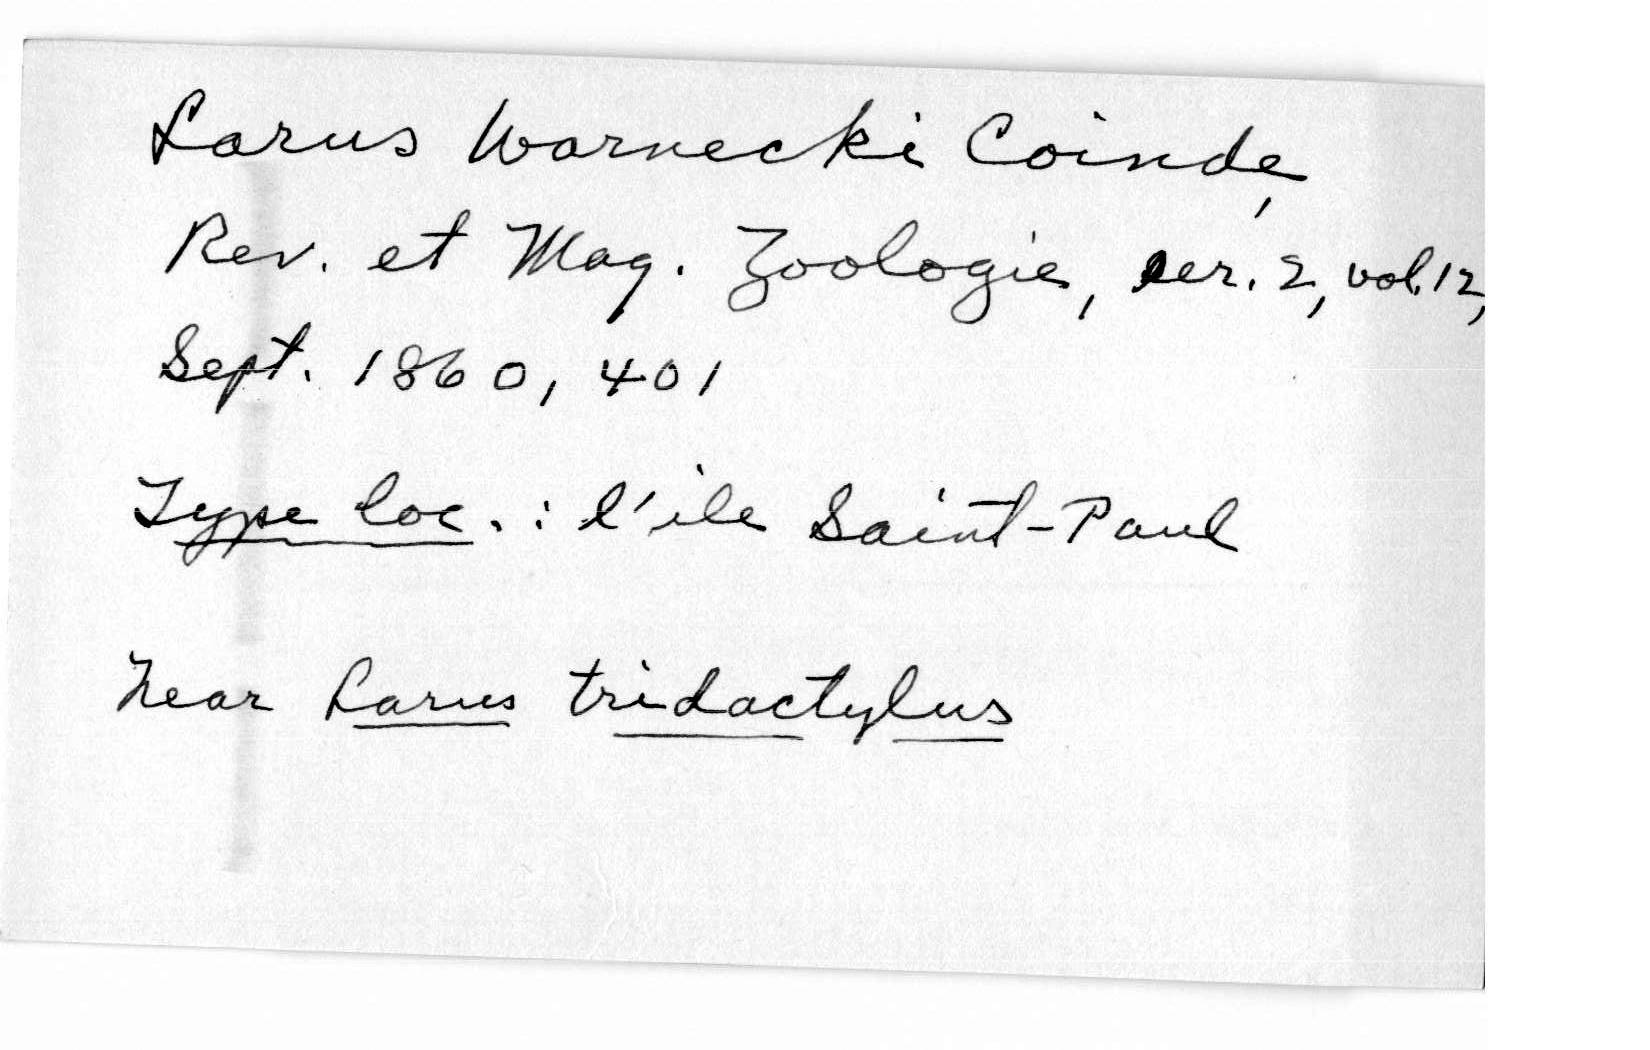 Larus Warnecki Coinde,
Rev. et Mag. Zoologie, ser. 2, vol. 12,
Sept. 1860, 401
Type loc. : l'ile Saint-Paul
Near Larus tridactylus